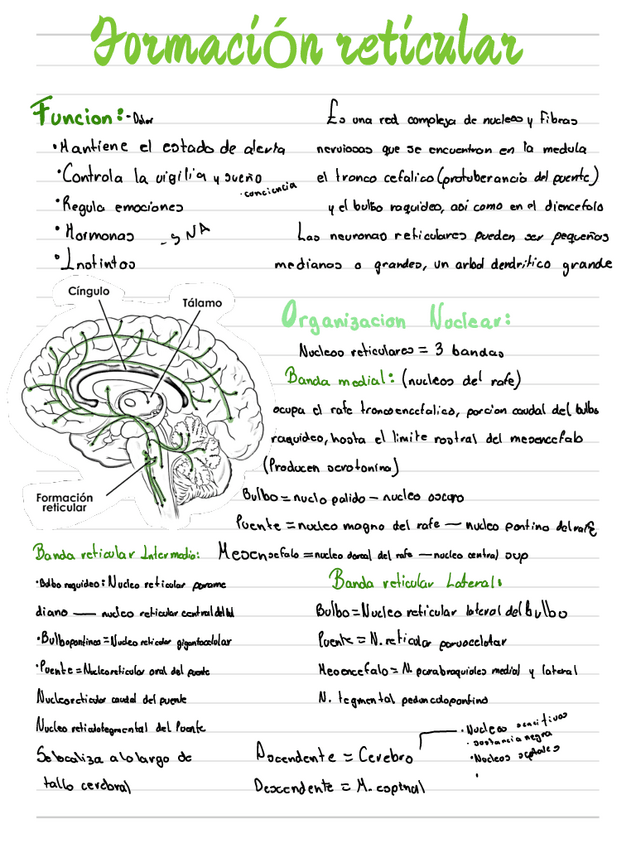 Formación reticular
Funcion:- Dolor
•Mantiene el estado de alerta
•Controla la vigilia y sueño
•conciencia
•Regula emociones
•Hormonas - SNA
•Instintos
Es una red compleja de nucleos y Fibras
nerviosas que se encuentran en la medula
el tronco cefalico (protuberancia del puente)
y el bulbo raquideo, asi como en el diencefalo
Las neuronas reticulares pueden ser pequeñas
medianas o grandes, un arbol dendritico grande
Cíngulo
Tálamo
Formación
reticular
Organizacion Nuclear:
Nucleos reticulares = 3 bandas
Banda medial: (nucleos del rafe)
ocupa el rafe troncoencefalico, porcion caudal del bulbo
raquideo, hasta el limite rostral del mesencefalo
(Producen serotonina)
Bulbo = nuclo palido - nucleo oscuro
Puente = nucleo magno del rafe — nucleo pontino del rafe
Mesensefalo = nucleo dorsal del rafe — nucleo central sup
Banda reticular Intermedia:
•Bulbo raquideo: Nucleo reticular parame
diano — nucleo reticular central del bul
•Bulbopontinos = Nucleo reticular gigantocelolar
•Puente = Nucleo reticular oral del puente
Nucleo reticular caudal del puente
Nucleo reticulotegmental del Puente
Se localiza a lo largo de
tallo cerebral
Banda reticular Lateral:
Bulbo = Nucleo reticular lateral del bulbo
Puente = N. reticular parvocelolar
Mesencefalo = N. parabraquiales medial y lateral
N. tegmental pedunculopontino
Ascendente = Cerebro
Descendente = M. espinal
•Nucleos sensitivos
•sustancia negra
•Nucleos septales
•